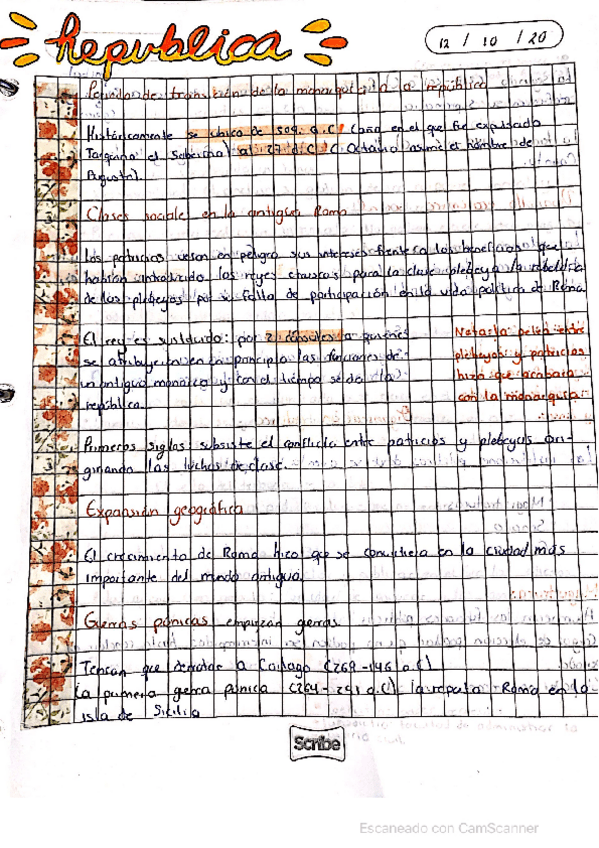 Republica
12 / 10 / 20
Periodo de transición de la monarquía a la república
Históricamente se ubica de 509 a.C (año en el que fue expulsado
Tarquino el Soberbio) al 27 d.C (Octavio asume el nombre de
Augusto).
Clases sociale en la antigua Roma
Los patricios veían en peligro sus intereses frente a los beneficios que
habían introducido los reyes etruscos para la clase plebeya la rebeldía
de los plebeyos por su falta de participación en la vida política de Roma
El rey es sustituido por 2 cónsules a quienes
se atribuyeron en principio las funciones de
un antiguo monarca y con el tiempo se da la
república.
Nota: la pelea entre
plebeyos y patricios
hizo que acabara
con la monarquía.
Primeros siglos: subsiste el conflicto entre patricios y plebeyos ori-
ginando las luchas de clase.
Expansión geográfica
El crecimiento de Roma hizo que se convirtiera en la ciudad más
importante del mundo antiguo.
Gerras púnicas empiezan gerras
Tenían que derrotar a Cartago (264-146 a.C)
La primera gerra púnica (264-241 a.C): la reputa Roma en la
isla de Sicilia
Scribe
Escaneado con CamScanner